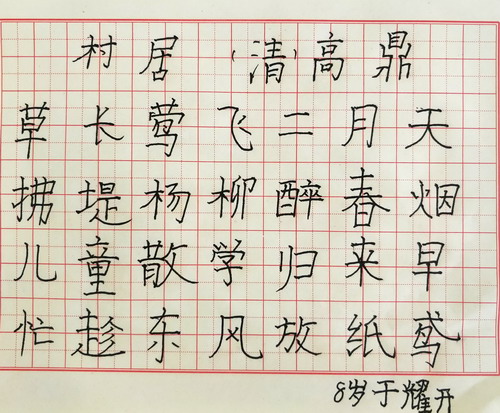 村居 (清)高鼎
草长莺飞二月天
拂堤杨柳醉春烟
儿童散学归来早
忙趁东风放纸鸢
8岁于耀开